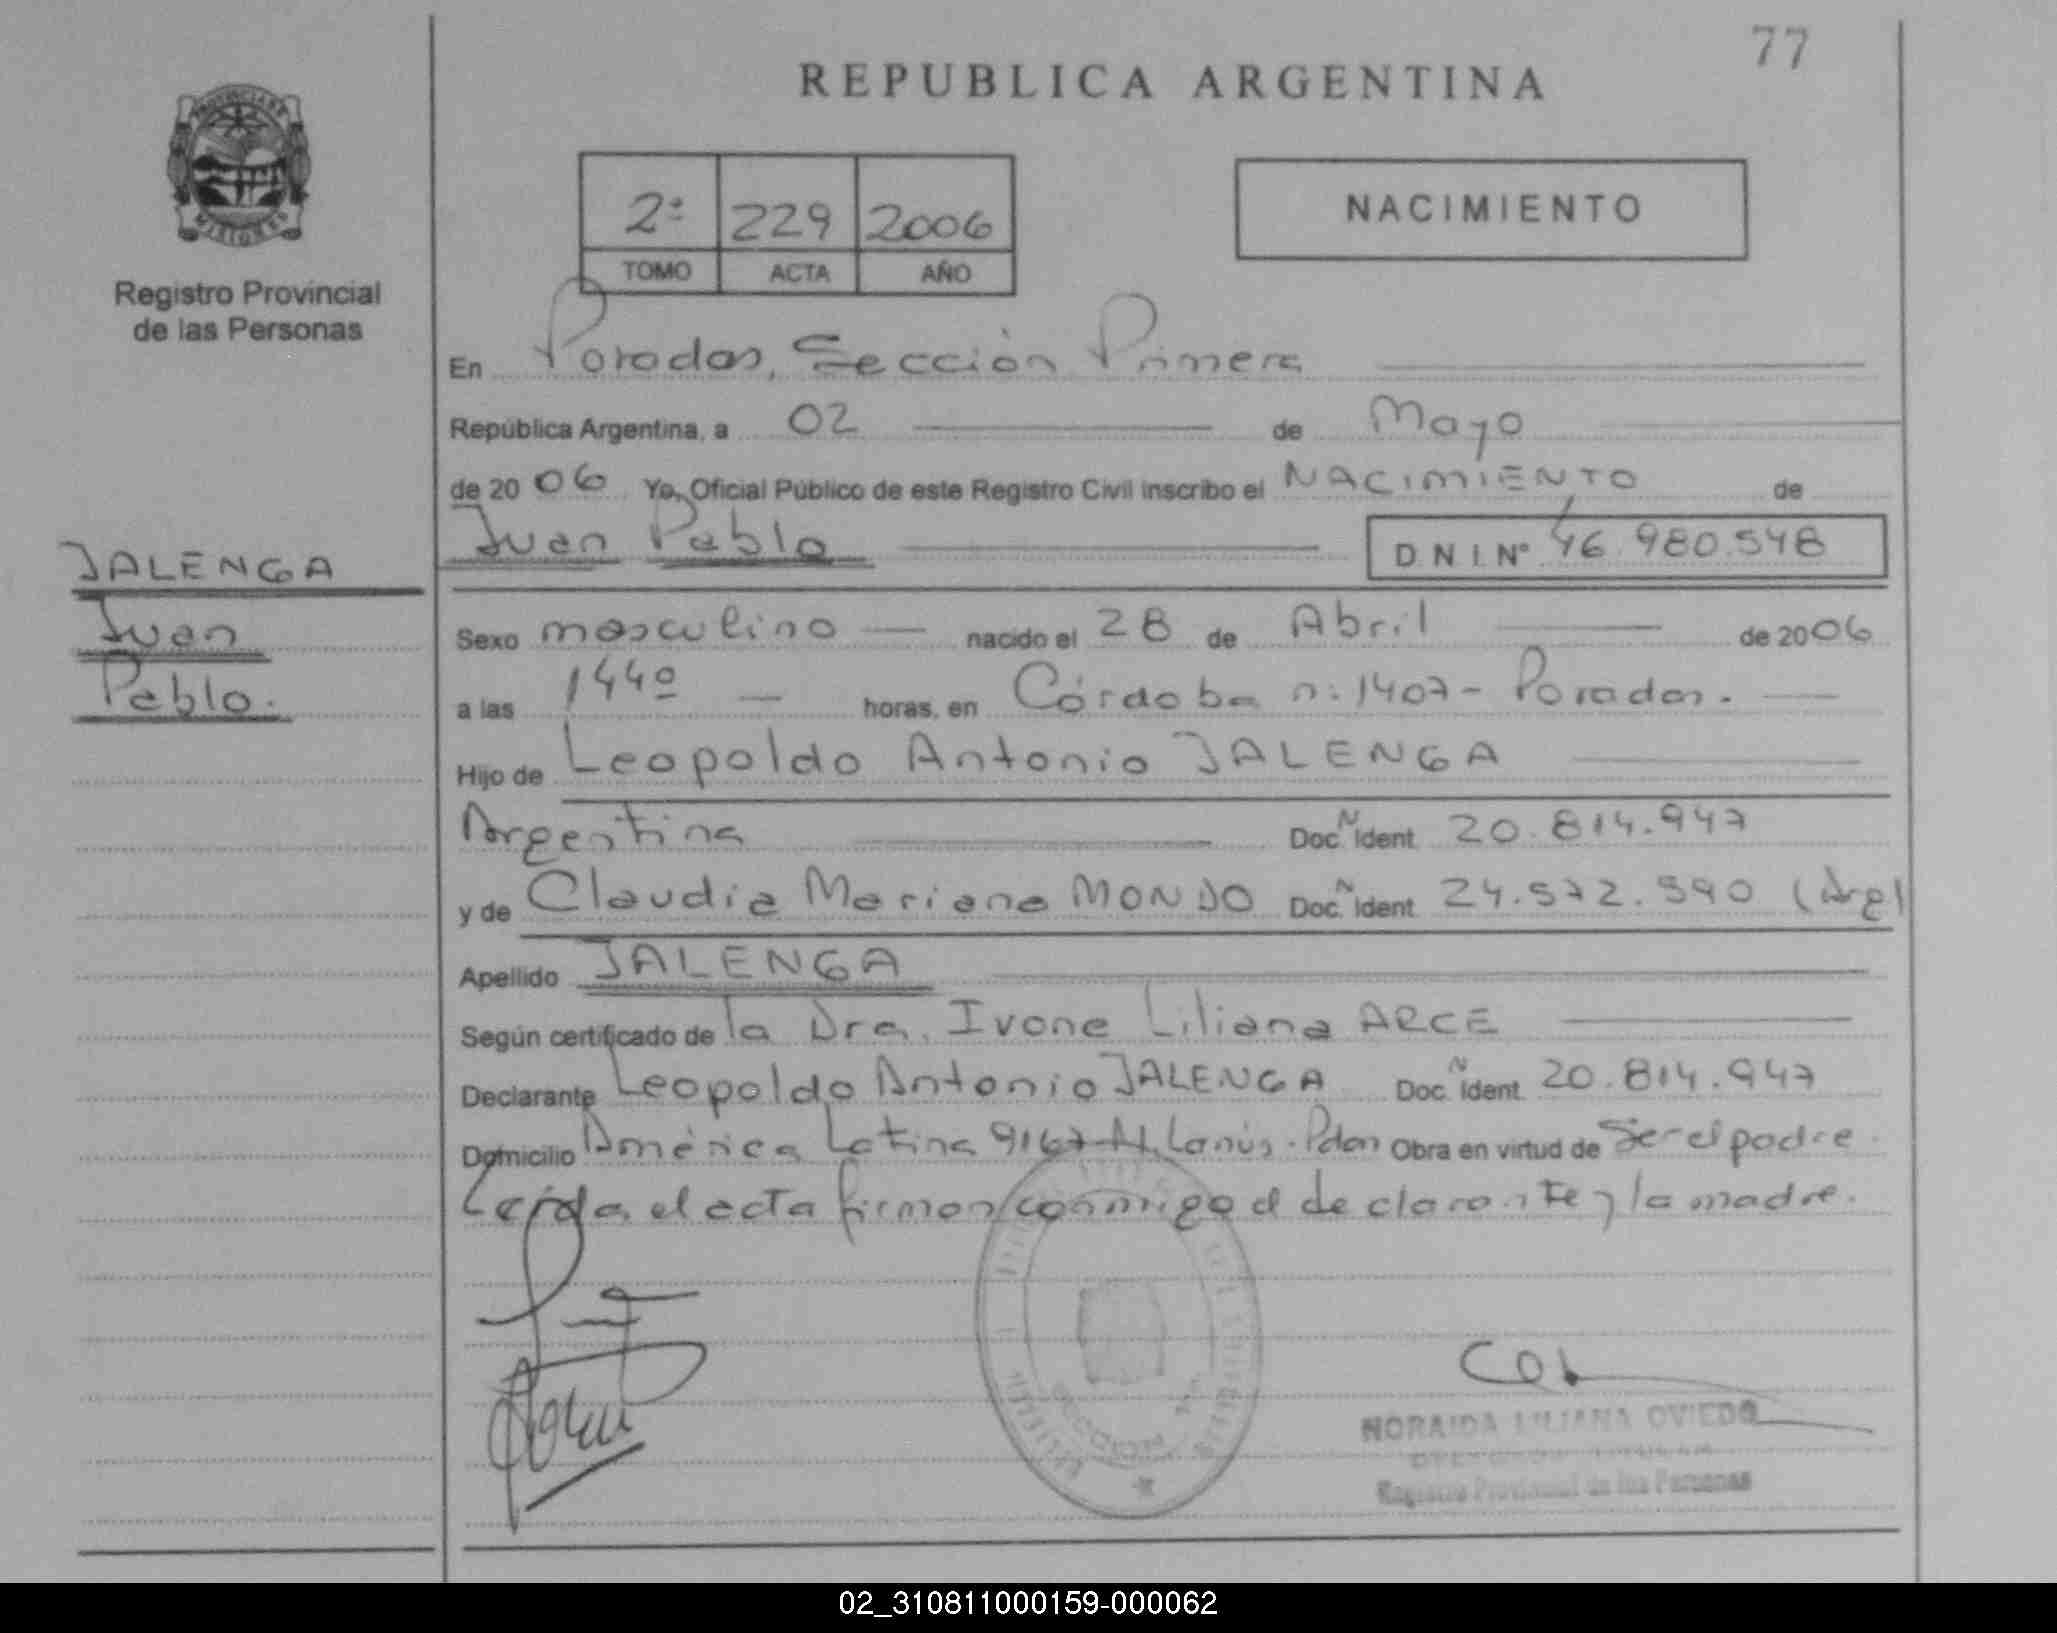 77
REPUBLICA ARGENTINA
PROVINCIA DE
MISIONES
Registro Provincial
de las Personas
2º 229 2006
TOMO ACTA AÑO
NACIMIENTO
En Posadas, Sección Primera
República Argentina, a 02 de Mayo
de 2006 Yo, Oficial Público de este Registro Civil inscribo el NACIMIENTO de
Juan Pablo D.N.I. Nº 46.980.548
JALENGA
Juan
Pablo.
Sexo masculino nacido el 28 de Abril de 2006
a las 1440 horas, en Córdoba nº 1407 - Posadas.
Hijo de Leopoldo Antonio JALENGA
Argentina Doc. N Ident. 20.814.947
y de Claudia Mariana MONDO Doc. N Ident. 24.572.590 (Arg)
Apellido JALENGA
Según certificado de la Dra. Ivone Liliana ARCE
Declarante Leopoldo Antonio JALENGA Doc. N Ident. 20.814.947
Domicilio América Latina 9167 A. Lanús. Pdas Obra en virtud de Ser el padre.
Leída el acta firman conmigo el declarante y la madre.
SECCION
NORAIDA LILIANA OVIEDO
Registro Provincial de las Personas
02_310811000159-000062